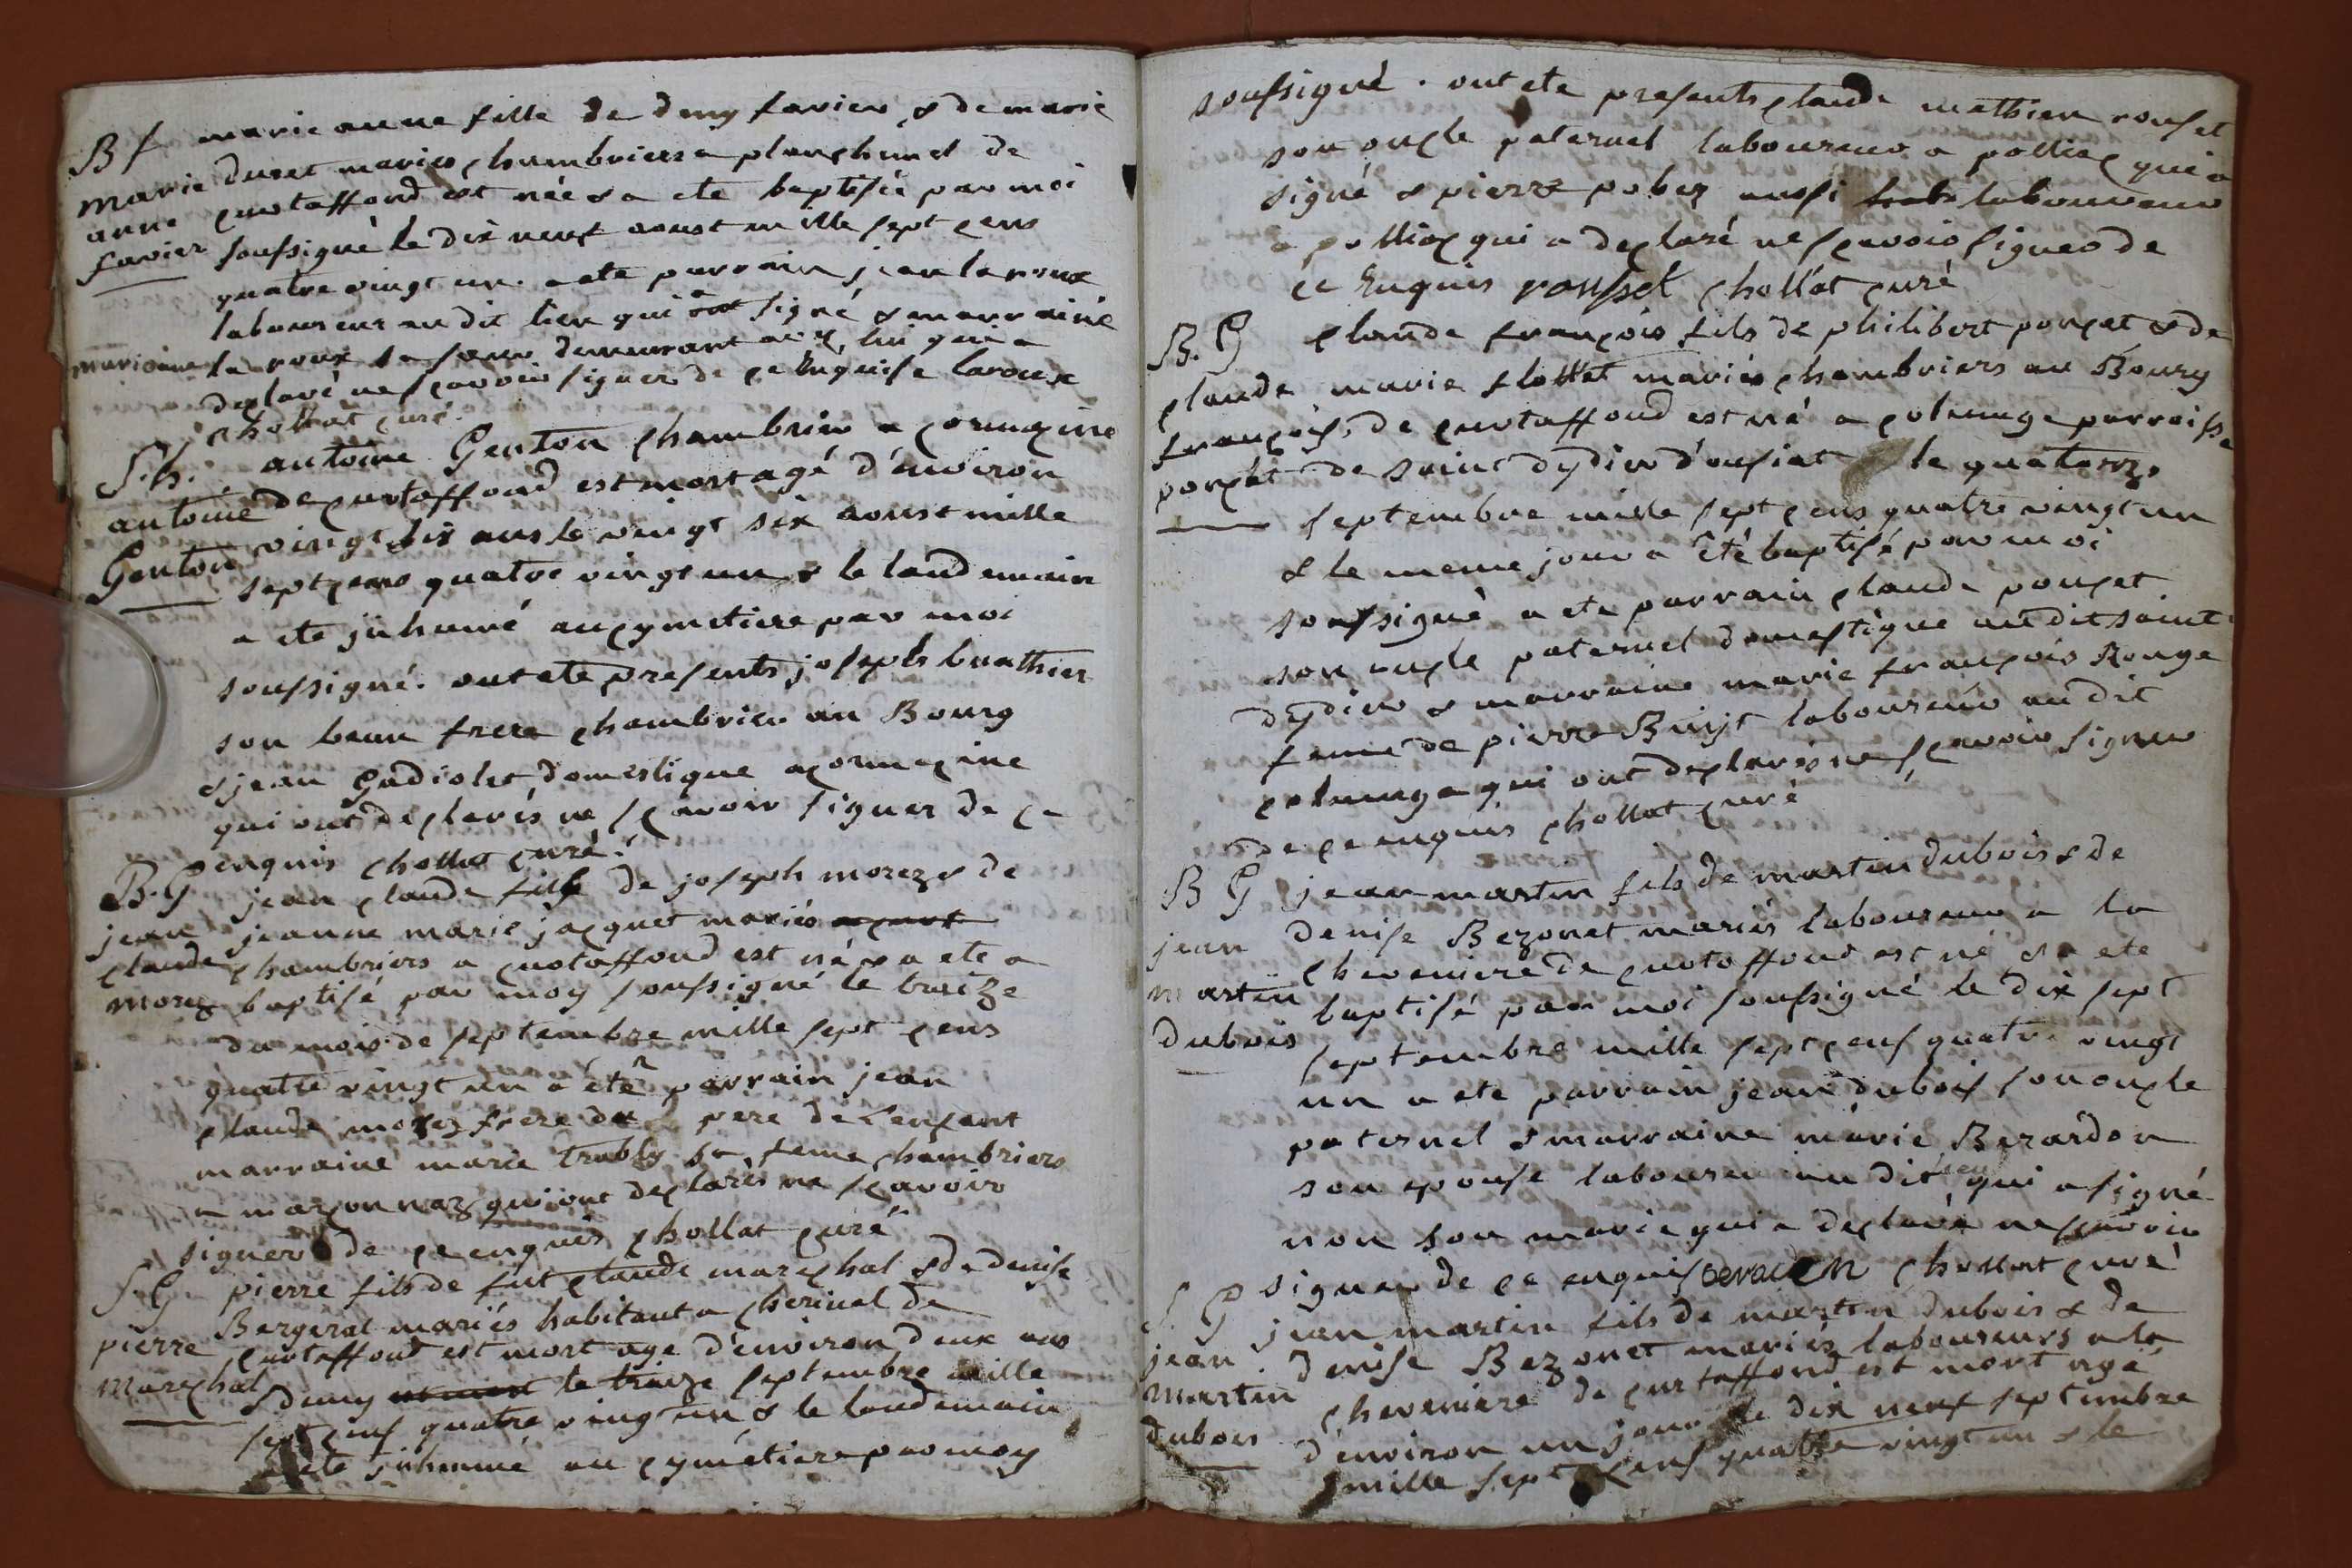 B f marie anne fille de deny favier & de marie
marie duret mariés chambriers a planchemel de
anne curtaffond est née & a ete baptisée par moi
favier soussigné le dix neuf aoust mille sept cens
quatre vingt un. a ete parrain jean laroux
laboureur au dit lieu qui a signé & marraine
marianne la roux sa soeur demeurant avec lui qui a
declaré ne scavoir signer de ce Enquise laroux
chollat curé.
S. h. antoine Genton chambrier a cormozine
antoine de curtaffond est mort agé d'environ
Genton vingt six ans le vingt six aoust mille
sept cens quatre vingt un & le landemain
a ete jnhumé au cymetiere par moi
soussigné. ont ete presents joseph buathier
son beau frere chambrier au Bourg
& jean Gadiolet domestique a cormozine
qui ont declarés ne scavoir signer de ce
enquis chollat curé.
B. G jean claude fils de joseph morez & de
jean jeanne marie jacquet mariés a curt
claude chambriers a curtaffond est né & a ete a
morez baptisé par moy soussigné le treize
du mois de septembre mille sept cens
quatre vingt un a été parrain jean
claude morez frere du pere de l'enfant
marraine marie trably sa feme chambriers
a marconnaz qui ont declarés ne scavoir
signer de ce enquis chollat curé
S. G pierre fils de fut claude marechal & de denise
Bergerat mariés habitant a cherinal de
pierre curtaffond est mort age d'environ deux ans
marechal & demy le treize septembre mille
sept cens quatre vingt un & le landemain
a ete jnhumé au cymétiere par moy
soussigné. ont ete presents claude mathieu rouset
son oncle paternel laboureur a polliac qui a
signé & pierre pobez aussi laboureur
a polliac qui a declaré ne scavoir signer de
ce Enquis rousset chollat curé
B. G claude françois fils de philibert poncet & de
claude marie flottet mariés chambriers au Bourg
françois de curtaffond est né a colonge parroisse
poncet de saint dydier d'oussiat le quatorze
septembre mille sept cens quatre vingt un
& le meme jour a été baptisé par moi
soussigné a ete parrain claude poncet
son oncle paternel domestique au dit saint
dydier & marraine marie françois Rouge
feme de pierre Buijt laboureur au dit
colonge qui ont declarés ne scavoir signer
de ce enquis chollat curé
B G jean martin fils de martin dubois & de
jean denise Bezonet mariés laboureur a la
martin cheveniere de curtaffond est né & a ete
dubois baptisé par moi soussigné le dix sept
septembre mille sept cens quatre vingt
un a ete parrain jean dubois son oncle
paternel & marraine marie Berardon
son epouse laboureu au dit lieu qui a signé
non son marie qui a declaré ne scavoir
signer de ce enquis chollat curé
S. G jean martin fils de martin dubois & de
jean denise Bezonet mariés laboureurs a la
martin cheveniere de curtaffond est mort agé
dubois d'environ un jour le dix neuf septembre
mille sept cens quatre vingt un & le